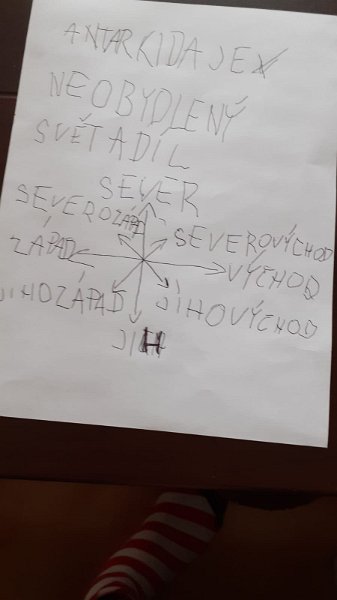 ANTARKIDA JE
NEOBYDLENÝ
SVĚTADÍL
SEVER
SEVEROZÁPAD
SEVEROVÝCHOD
ZÁPAD
VÝCHOD
JIHOZÁPAD
JÍHOVÝCHOD
JIH